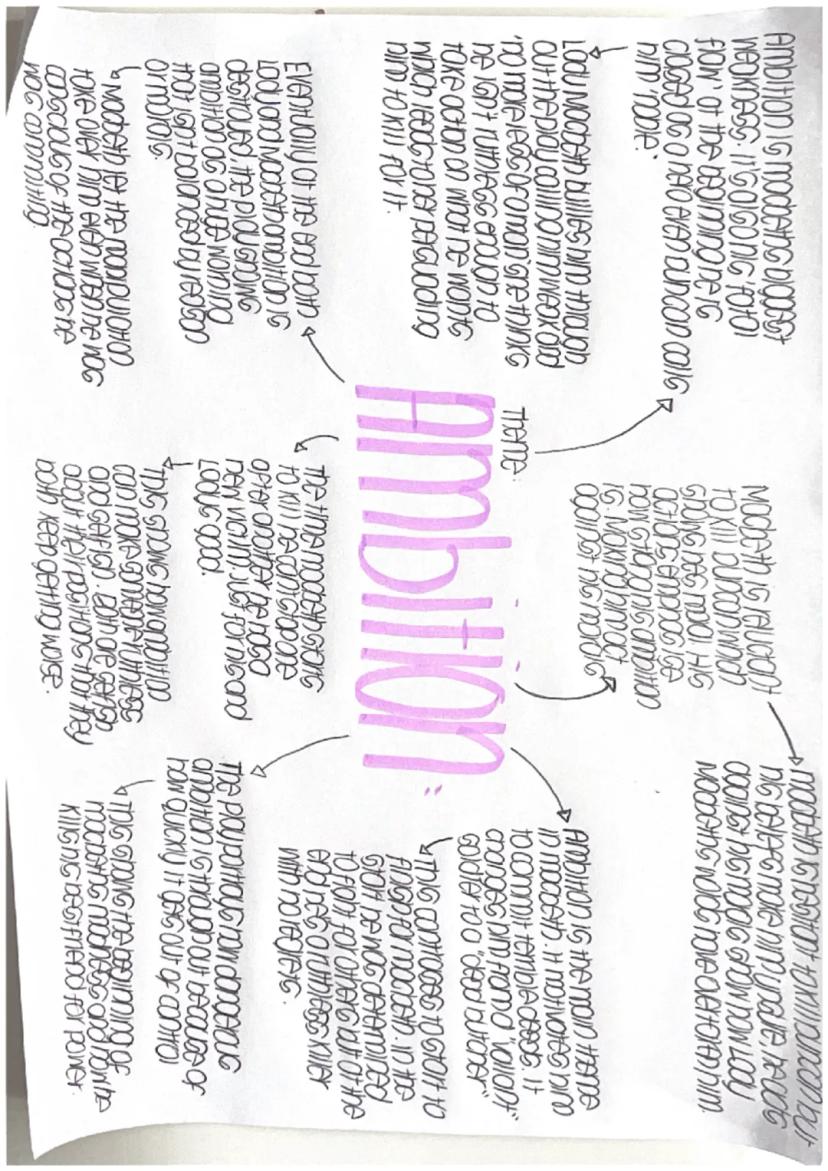 Ambition is macbeths biggest
weakness. It's a going 'fatal
flaw' at the beginning he is
classed as a hero even duncan calls
him 'noble'.
Lady macbeth bullies him through
out the play calling him weak and
'no more less of a man' she thinks
he isn't ruthless enough to
take action on what he wants
which leads to her persuading
him to kill for it.
Eventually at the end both
Lady and Macbeth ambition is
destroyed. The play going
ambition as a huge warning
that isn't balanced by reason
or morals
Macbeth let the manipulation
take over him even when he was
conscious of the actions he
was committing.
Theme:
"Ambition"
Macbeth is reluctant
to kill duncan which
shows his moral. His
actions emphasise
how strong his ambition
is. Making him act
against his morals
macbeth is hesitant to kill duncan but
his desires make him unsure. He acts
against his morals show how Lady
Macbeths words have defeated him.
The time macbeth starts
to kill he cant stop. One
after another he has a
new victim just for his and
Ladys good.
This shows how ambition
can make someone ruthless
and selfish. Both are selfish
about their positions that they
both keep getting worse.
Ambition is the main theme
in macbeth. It motivates him
to commit terrible deeds. It
changes him from a "valiant"
soldier to a "dead butcher"
This contrasts to start to
finish for macbeth. In the
start he was determined
to fight for others but at the
end hes a ruthless killer
with no regrets.
The play portrays how dangerous
ambition is throughout because of
how quickly it gets out of control
This shows the beginning of
macbeths madness and how he
kills his best friend for power.